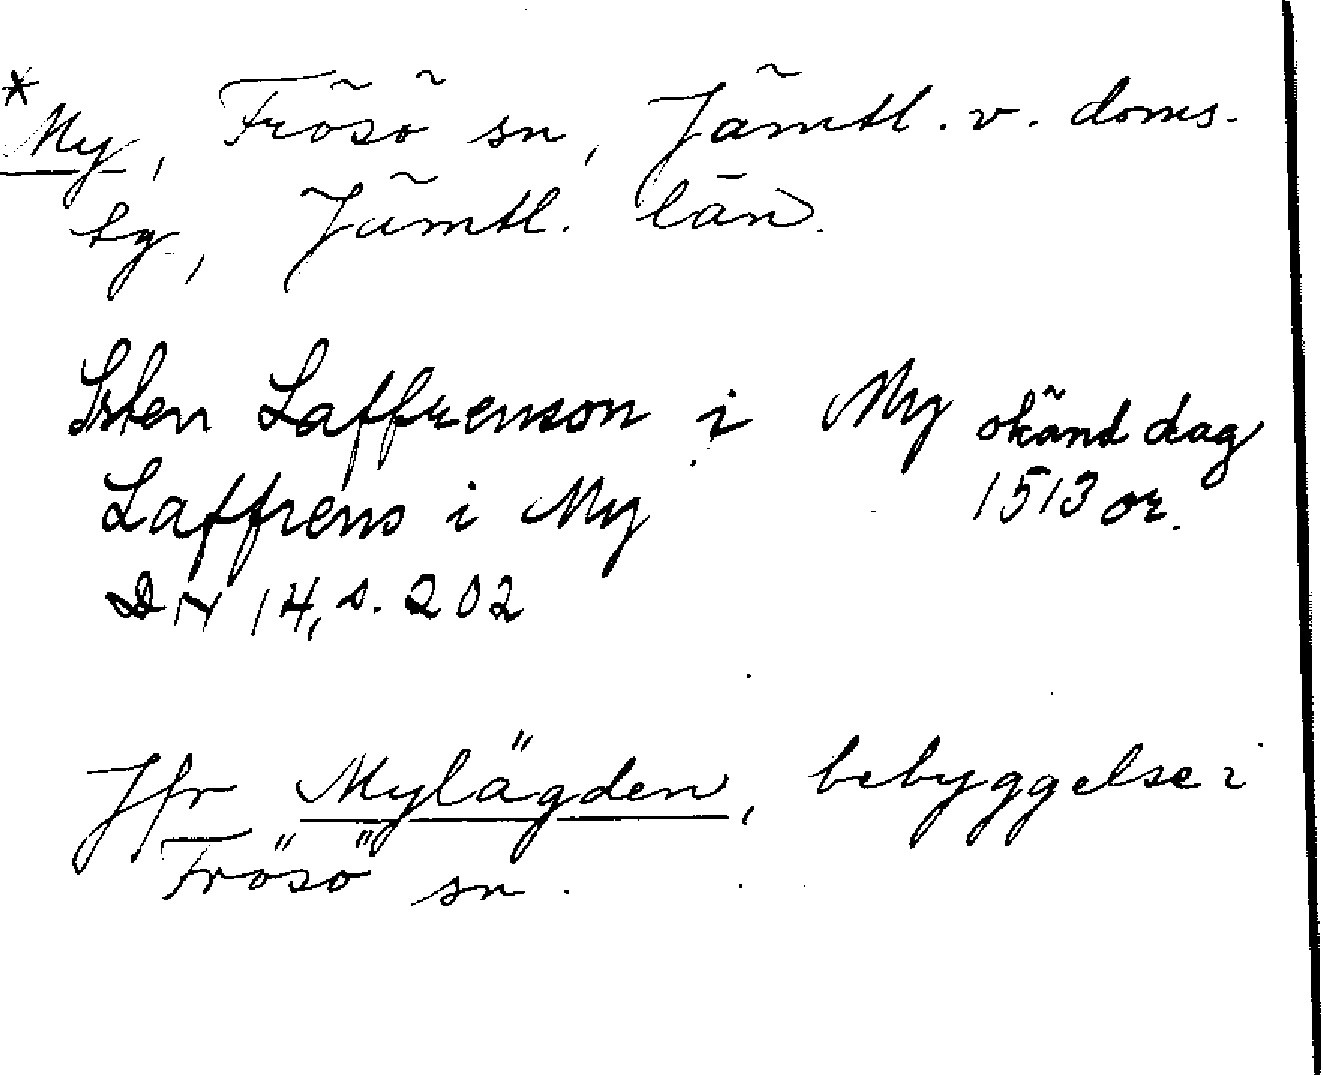 *My, Frösö sn, Jämtl. v. doms.
sg, Jämtl. län.
Sten Laffrenson i My okänd dag
Laffrens i My 1513 or.
DN 14, s. 202
Jfr Mylägden, bebyggelse i
Frösö sn.